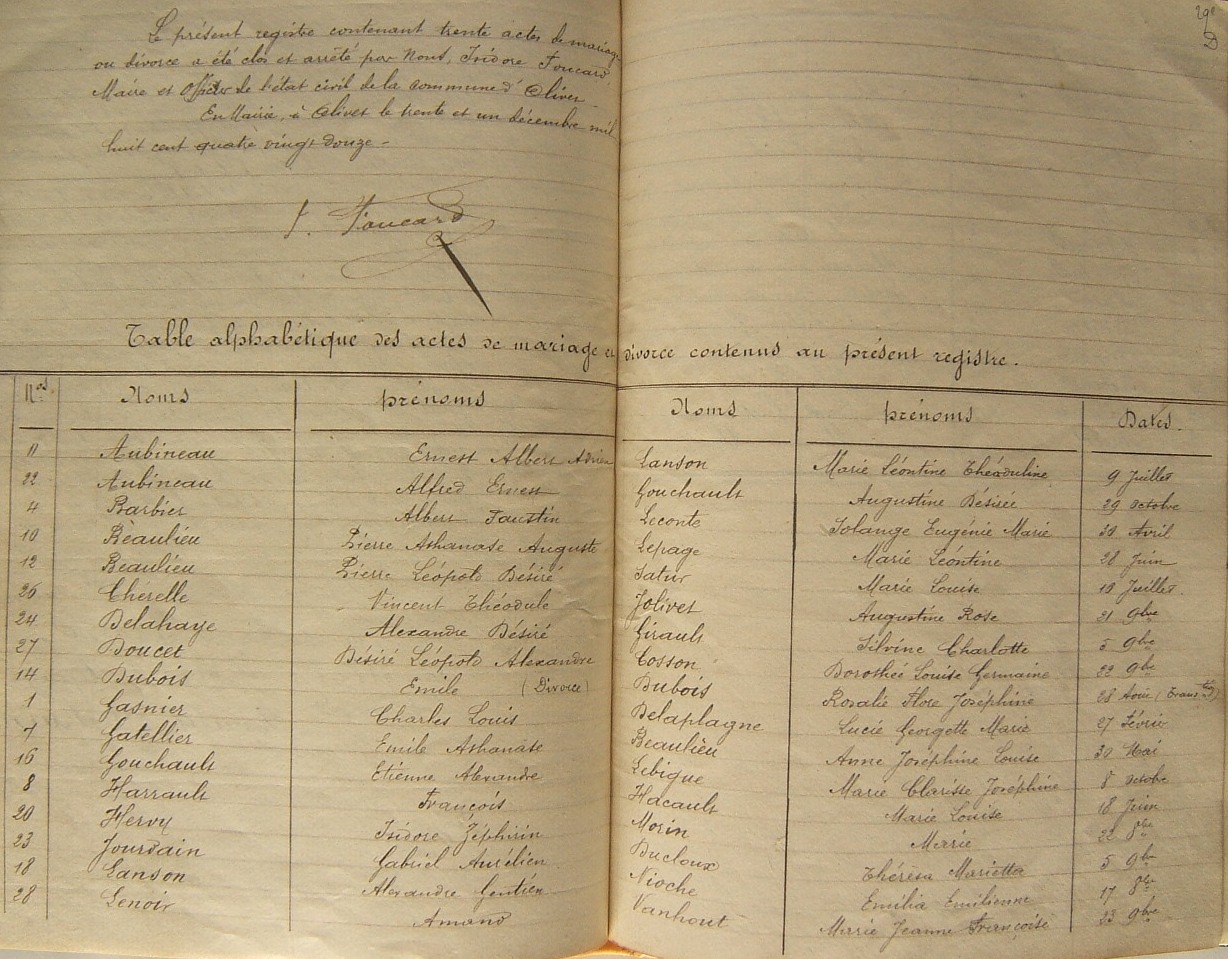 29e
D
Le présent registre contenant trente actes de mariage
ou divorce a été clos et arrêté par Nous, Isidore Foucard
Maire et Officier de l'état civil de la commune d'Olivet
En Mairie, à Olivet le trente et un décembre mil
huit cent quatre vingt douze -
I. Foucard
Table alphabétique des actes de mariage et divorce contenus au présent registre.
Nos Noms prénoms Noms prénoms Dates.
11 Aubineau Ernest Albert Adrien Lanson Marie Léontine Théoduline 9 Juillet
22 Aubineau Alfred Ernest Gouchault Augustine Désirée 29 octobre
4 Barbier Albert Faustin Leconte Solange Eugénie Marie 30 Avril
10 Beaulieu Pierre Athanase Auguste Lepage Marie Léontine 28 Juin
12 Beaulieu Pierre Léopold Désiré Satur Marie Louise 19 Juillet.
26 Chérelle Vincent Théodule Jolivet Augustine Rose 21 9bre
24 Delahaye Alexandre Désiré Girault Silvine Charlotte 5 9bre
27 Doucet Désiré Léopold Alexandre Cosson Dorothée Louise Germaine 22 9bre
14 Dubois Emile (Divorce) Dubois Rosalie Flore Joséphine 28 Août
1 Gasnier Charles Louis Delaplagne Lucie Georgette Marie 27 Février
7 Gatellier Emile Athanase Beaulieu Anne Joséphine Louise 30 Mai
16 Gouchault Etienne Alexandre Lebigue Marie Clarisse Joséphine 8 octobre
8 Harrault François Hacault Marie Louise 18 Juin
20 Hervy Isidore Zéphirin Morin Marie 22 8bre
23 Jourdain Gabriel Aurélien Ducloux Thérèsa Marietta 5 9bre
18 Lanson Alexandre Gentien Nioche Emilia Emilienne 17 8bre
28 Lenoir Amand Vanhout Marie Jeanne Françoise 23 9bre